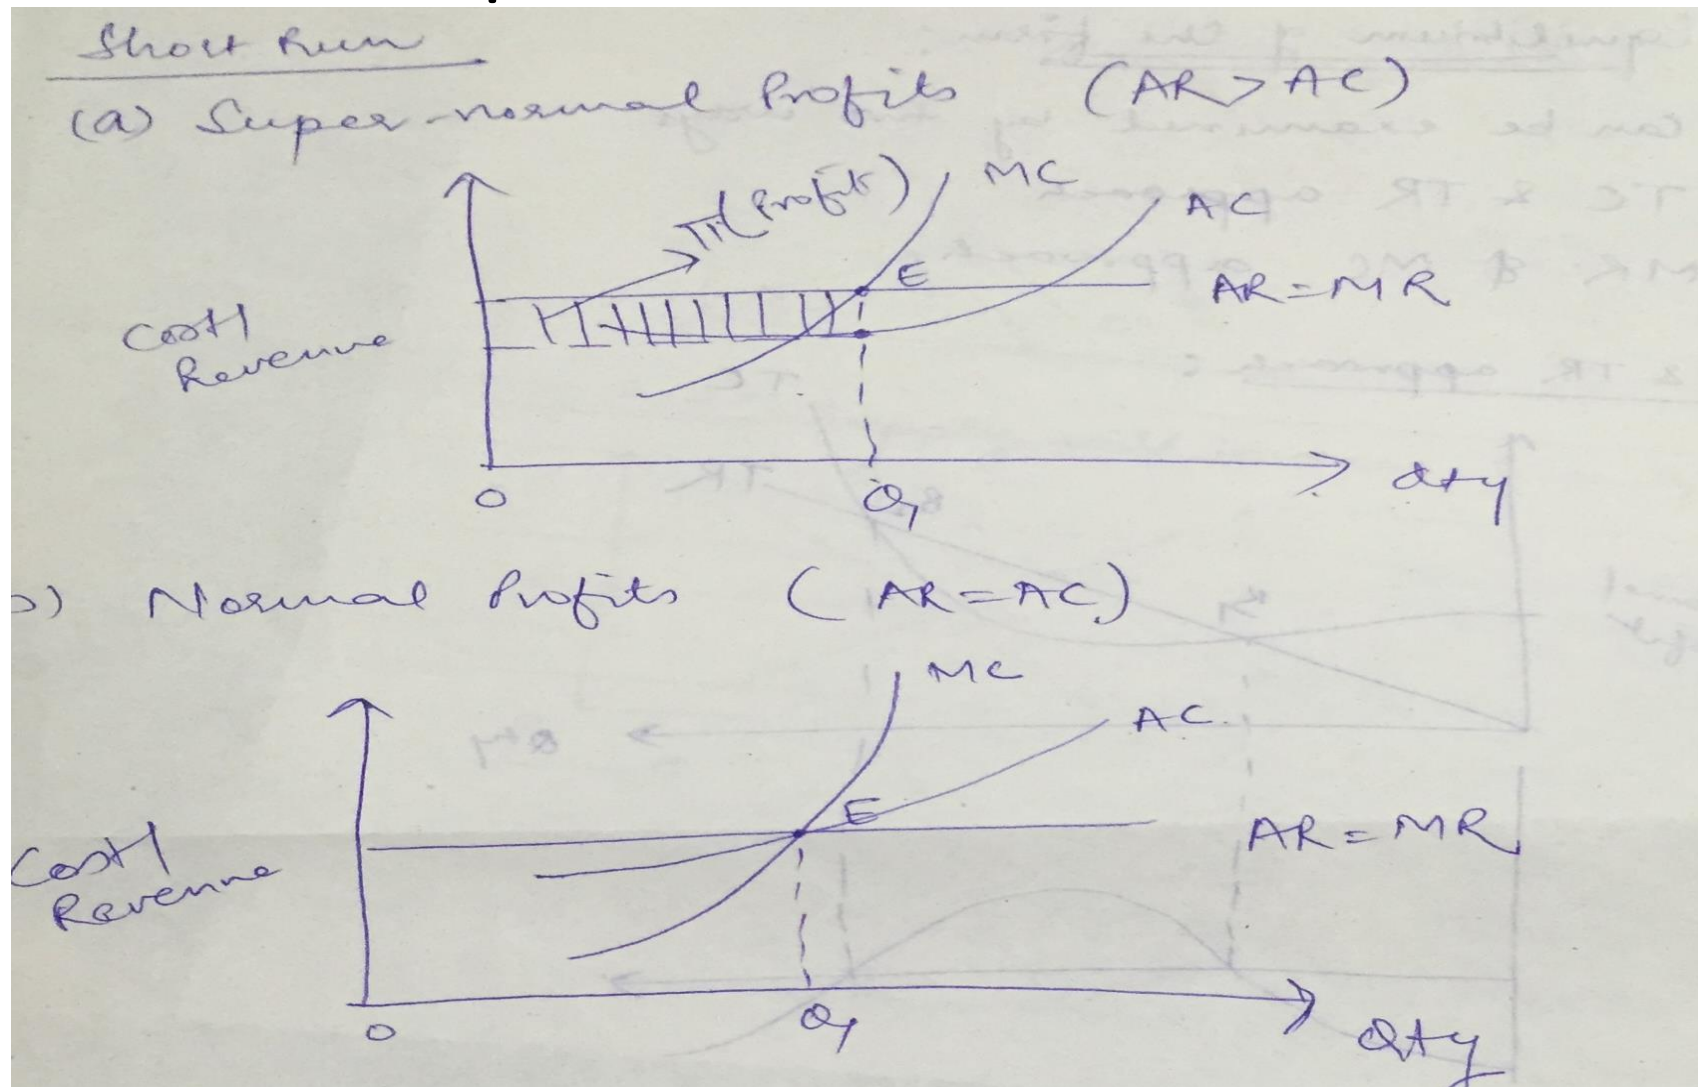 Short Run
(a) Super-normal Profits (AR > AC)
π (Profit)
MC
AC
E
AR = MR
Cost/
Revenue
O
Q1
Qty
b) Normal Profits (AR = AC)
MC
AC
E
AR = MR
Cost/
Revenue
O
Q1
Qty